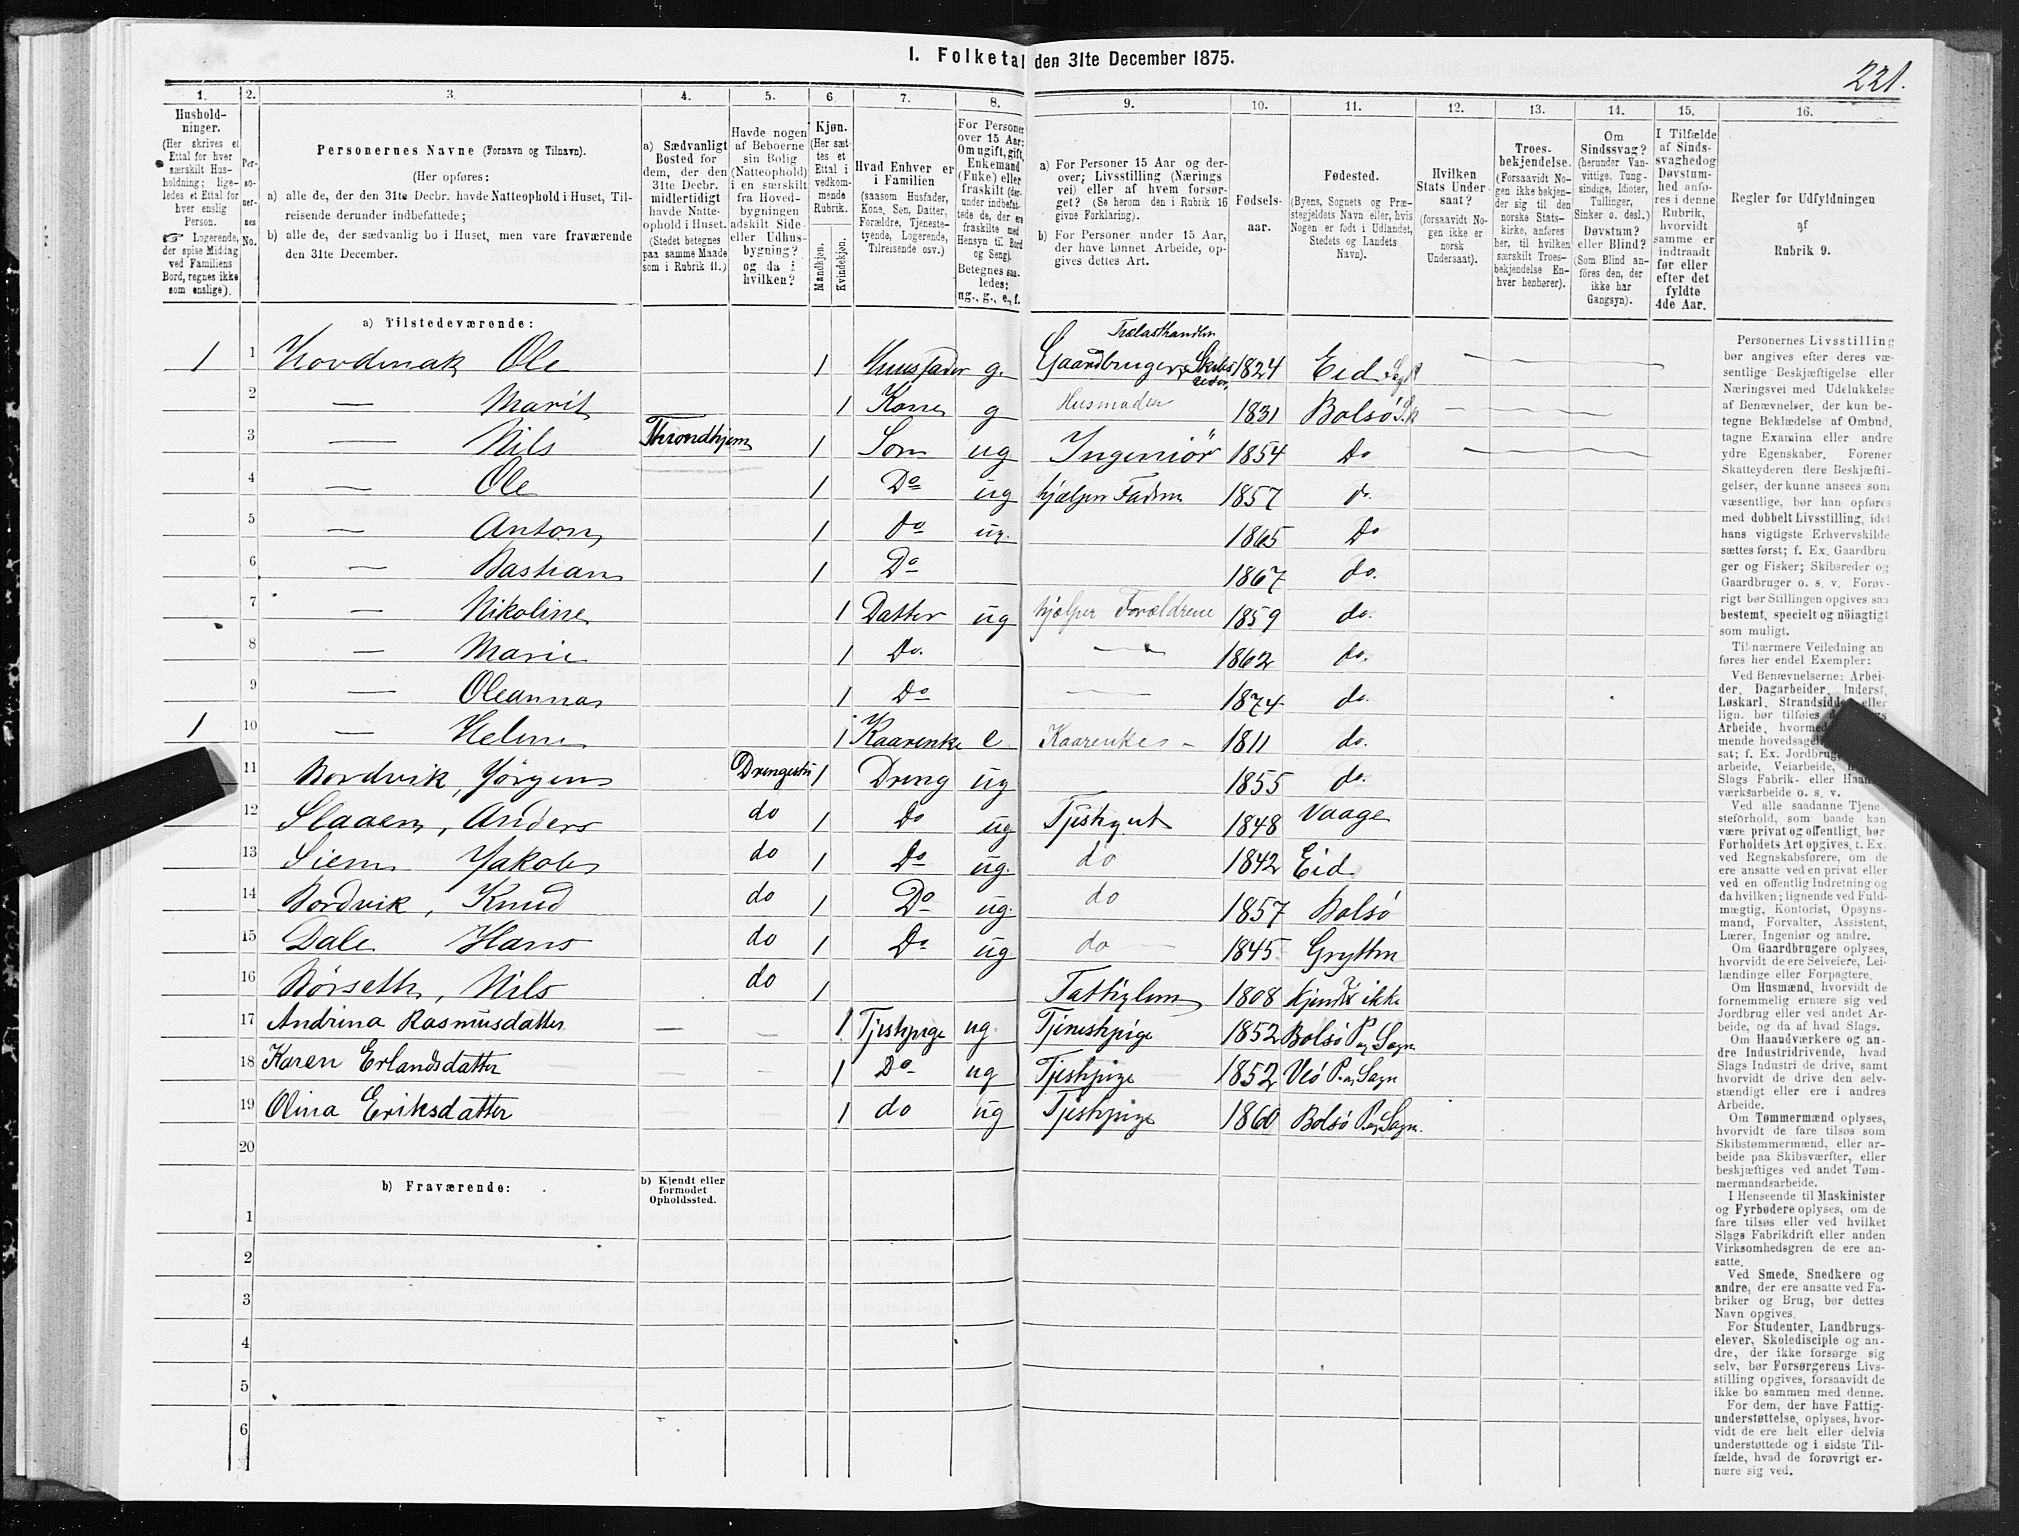 I. Folketal den 31te December 1875.
221.
1.
2.
3.
4.
5.
6.
7.
8.
9.
10.
11.
12.
13.
14.
15.
16.
Hushold-
ninger.
(Her skrives et
Ettal for hver
særskilt Hus-
holdning; lige-
ledes et Ettal for
hver enslig
Person.
☞ Logerende,
der spise Middag
ved Familiens
Bord, regnes ikke
som enslige).
Per-
so-
ner-
nes
No.
Personernes Navne (Fornavn og Tilnavn).
(Her opføres:
a) alle de, der den 31te Decbr. havde Natteophold i Huset, Til-
reisende derunder indbefattede;
b) alle de, der sædvanlig bo i Huset, men vare fraværende
den 31te December.
a) Sædvanligt
Bosted for
dem, der den
31te Decbr.
midlertidigt
havde Natte-
ophold i Huset.
(Stedet betegnes
paa samme Maade
som i Rubrik 11.)
Havde nogen
af Beboerne
sin Bolig
(Natteophold)
i en særskilt
fra Hoved-
bygningen
adskilt Side-
eller Udhus-
bygning?
og da i
hvilken?
Kjøn.
(Her sæt-
tes et
Ettal i
vedkom-
mende
Rubrik.
Mandkjøn.
Kvindekjøn.
Hvad Enhver er
i Familien
(saasom Husfader,
Kone, Søn, Datter,
Forældre, Tjeneste-
tyende, Logerende,
Tilreisende osv.)
For Personer
over 15 Aar:
Om ugift, gift,
Enkemand
(Enke) eller
fraskilt (der-
under indbefat-
tede de, der ere
fraskilte med
Hensyn til Bord
og Seng).
Betegnes saa-
ledes:
ug., g., e., f.
a) For Personer 15 Aar og der-
over; Livsstilling (Nærings
vei) eller af hvem forsør-
get? (Se herom den i Rubrik 16
givne Forklaring).
b) For Personer under 15 Aar,
der have lønnet Arbeide, op-
gives dettes Art.
Fødsels-
aar.
Fødested.
(Byens, Sognets og Præ-
stegjeldets Navn eller, hvis
Nogen er født i Udlandet,
Stedets og Landets
Navn).
Hvilken
Stats Under-
saat?
(forsaavidt No-
gen ikke er
norsk
Undersaat).
Troes-
bekjendelse.
(Forsaavidt No-
gen ikke bekjen-
der sig til den
norske Stats-
kirke, anføres
her, til hvilken
særskilt Troes-
bekjendelse En-
hver henhører).
Om
Sindssvag?
(herunder Van-
vittige, Tung-
sindige, Idioter,
Tullinger,
Sinker o. desl.)
Døvstum?
eller Blind?
(Som Blind an-
føres den, der
ikke har
Gangsyn).
I Tilfælde
af Sinds-
svaghed og
Døvstum-
hed anfø-
res i denne
Rubrik,
hvorvidt
samme er
indtraadt
før eller
efter det
fyldte
4de Aar.
Regler for Udfyldningen
af
Rubrik 9.
a) Tilstedeværende:
1 1 Hovdenak Ole 1 Huusfader g. Trælasthandler Gaardbruger, Skibsreder 1824 Eid
2 — Marit 1 Kone g Husmoder 1831 Bolsø
3 — Nils Throndhjem 1 Søn ug Ingeniør 1854 Do
4 — Ole 1 Do ug hjælper Faderen 1857 do.
5 — Anton 1 do ug. 1865 Do
6 — Bastian 1 Do 1867 do.
7 — Nikoline 1 Datter ug hjælper Forældrene 1859 do.
8 — Marie 1 Do. — 1862 do.
9 — Oleanna 1 Do — 1874 do.
1 10 — Helene 1 Kaarenke e Kaarenke 1811 do.
11 Nordvik, Jørgen Drengestu 1 Dreng ug 1855 do.
12 Slaaen, Anders do 1 Do ug Tjeskgut 1848 Vaage
13 Siem Jakob do 1 Do ug. do 1842 Eid
14 Nordvik, Knud do 1 Do ug. do 1857 Bolsø
15 Dale Hans do 1 Do ug do 1845 Grytten
16 Nørseth, Nils do 1 Fattiglem 1808 Kjendes ikke
17 Andrina Rasmusdatter — — 1 Tjeskpige ug. Tjeneskpige 1852 Bolsø P og Sogn
18 Karen Erlandsdatter 1 Do ug Tjeskpige 1852 Veø P. og Sogn
19 Olina Eriksdatter 1 do ug Tjeskpige 1860 Bolsø P. og Sogn.
20
b) Fraværende:
b) Kjendt eller
formodet
Opholdssted.
1
2
3
4
5
6
Personernes Livsstilling
bør angives efter deres væ-
sentlige Beskjæftigelse eller
Næringsvei med Udelukkelse
af Benævnelser, der kun be-
tegne Beklædelse af Ombud,
tagne Examina eller andre
ydre Egenskaber. Forener
Skatteyderen flere Beskjæfti-
gelser, der kunne ansees som
væsentlige, bør han opføres
med dobbelt Livsstilling, idet
hans vigtigste Erhvervskilde
sættes først; f. Ex. Gaardbru-
ger og Fisker; Skibsreder og
Gaardbruger o. s. v. Forøv-
rigt bør Stillingen opgives saa
bestemt, specielt og nøiagtigt
som muligt.
Til nærmere Veiledning an
føres her endel Exempler:
Ved Benævnelserne: Arbei-
der, Dagarbeider, Inderst,
Løskarl, Strandsidder eller
lign. bør tilføies
Arbeide, hvormed
mende hovedsagel
sat; f. Ex. Jordbrug,
arbeide, Veiarbeide,
Slags Fabrik- eller Haand-
værksarbeide o. s. v.
Ved alle saadanne Tjene-
steforhold, som baade kan
være privat og offentligt, bør
Forholdets Art opgives, f. Ex.
ved Regnskabsførere, om de
ere ansatte ved en privat eller
ved en offentlig Indretning og
da hvilken; lignende ved Fuld-
mægtig, Kontorist, Opsyns-
mand, Forvalter, Assistent,
Lærer, Ingeniør og andre.
Om Gaardbrugere oplyses,
hvorvidt de ere Selveiere, Lei-
lændinge eller Forpagtere.
Om Husmænd, hvorvidt de
fornemmelig ernære sig ved
Jordbrug eller ved andet Ar-
beide, og da af hvad Slags.
Om Haandværkere og an-
dre Industridrivende, hvad
Slags Industri de drive, samt
hvorvidt de drive den selv-
stændigt eller ere i andres
Arbeide.
Om Tømmermænd oplyses,
hvorvidt de fare tilsøs som
Skibstømmermænd, eller ar-
beide paa Skibsværfter, eller
beskjæftiges ved andet Tøm-
mermandsarbeide.
I Henseende til Maskinister
og Fyrbødere oplyses, om de
fare tilsøs eller ved hvilket
Slags Fabrikdrift eller anden
Virksomhedsgren de ere an-
satte.
Ved Smede, Snedkere og
andre, der ere ansatte ved Fa-
briker og Brug, bør dettes
Navn opgives.
For Studenter, Landbrugs-
elever, Skoledisciple og an-
dre, der ikke forsørge sig
selv, bør Forsørgerens Livs-
stilling opgives, forsaavidt de
ikke bo sammen med denne.
For dem, der have Fattig-
understøttelse, oplyses, hvor-
vidt de ere helt eller delvis
understøttede og i sidste Til-
fælde, hvad de forøvrigt er-
nære sig ved.